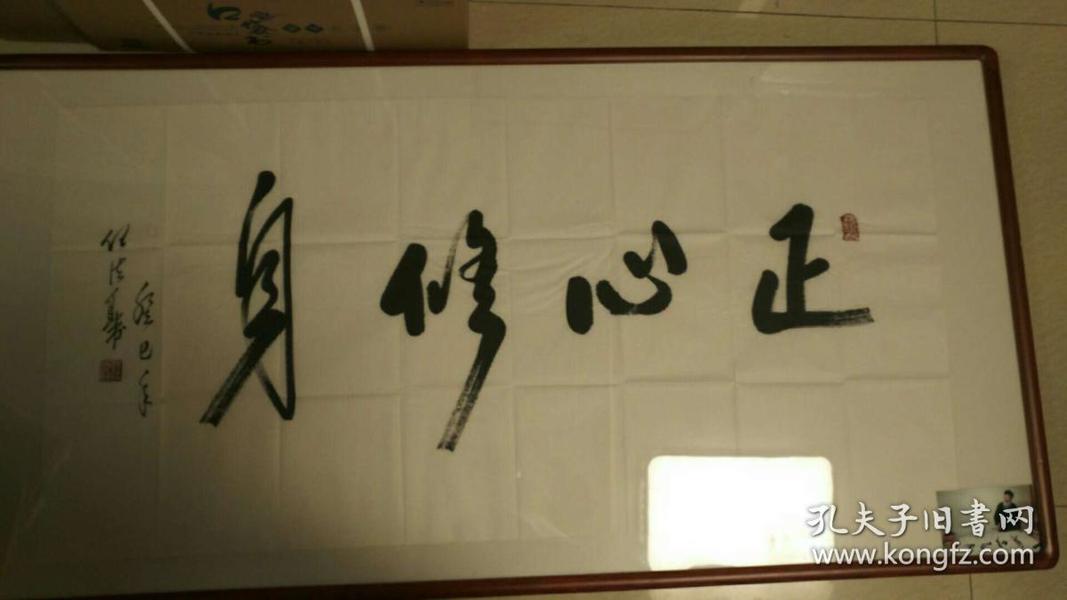 正心修身
癸巳年
孔夫子旧書网
www.kongfz.com